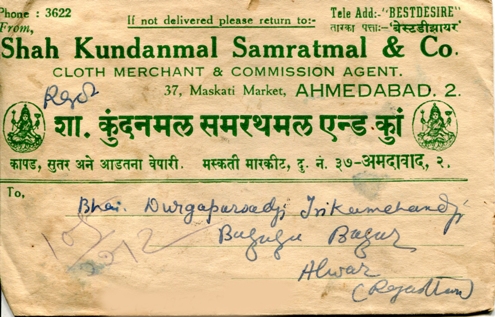 Phone : 3622
If not delivered please return to:-
Tele Add:-"BESTDESIRE"
From,
तारका पत्ताः-"बेस्टडीझायर"
Shah Kundanmal Samratmal & Co.
CLOTH MERCHANT & COMMISSION AGENT.
37, Maskati Market, AHMEDABAD. 2.
शा. कुंदनमल समरथमल एन्ड कुां
कापड, सुतर अने आडतना वेपारी. मस्कती मारकीट, दु. नं. ३७-अमदावाद, २.
To,
Bhai. Durgaparsadji
Bazar
Alwar
(Rajasthan)